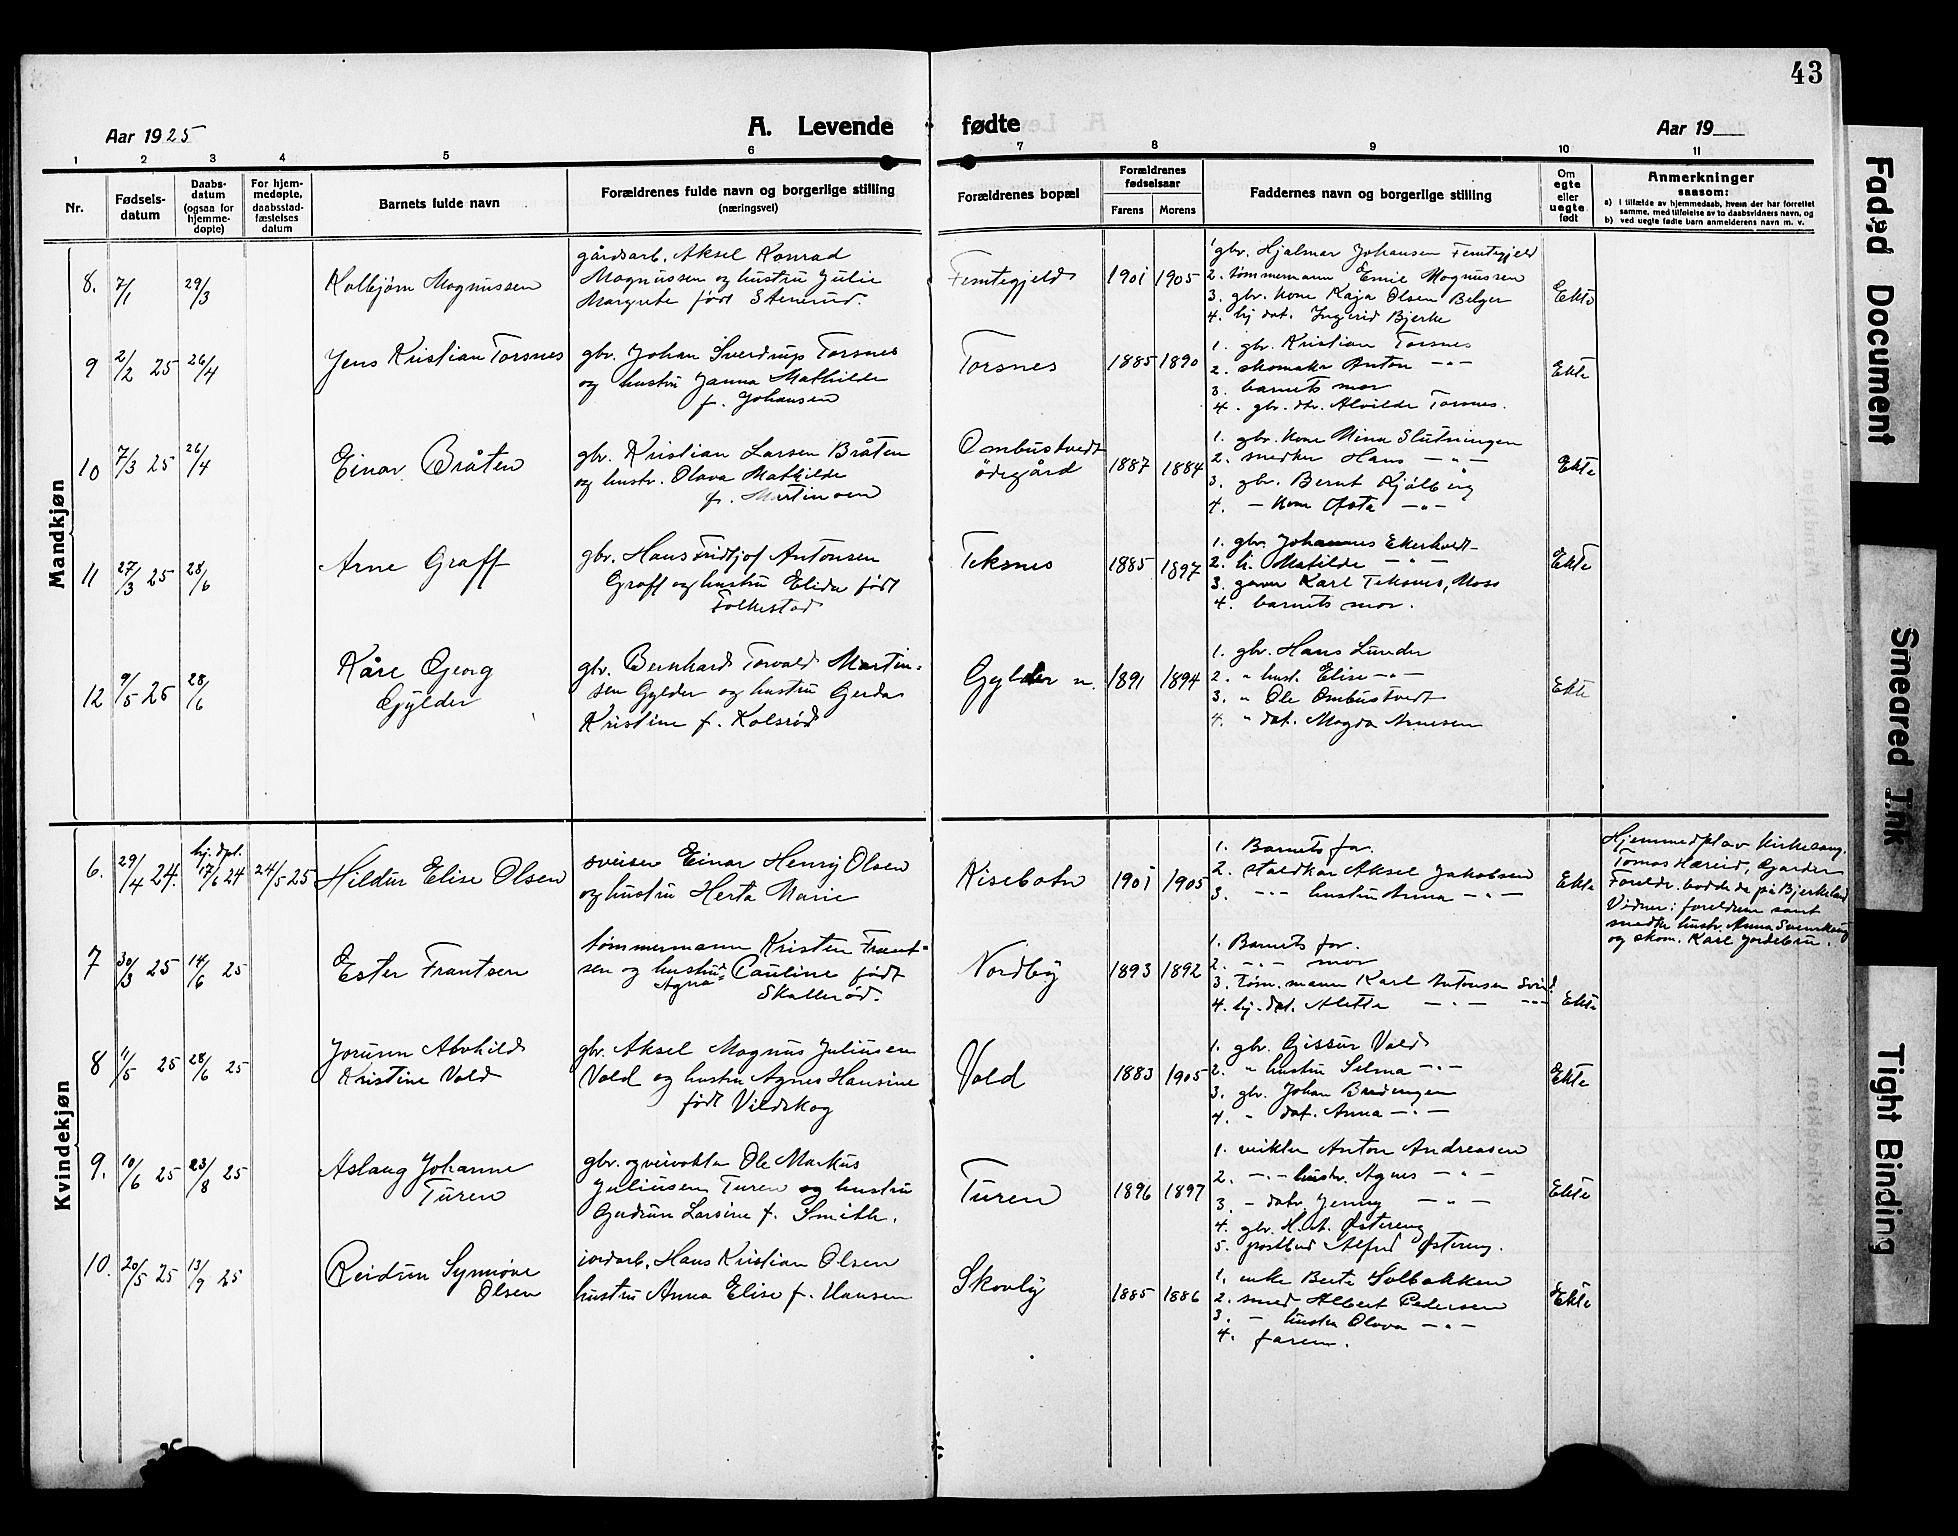 43
Aar 1925
A. Levende fødte
Aar 19
1 2 3 4 5 6 7 8 9 10 11
Nr.
Fødsels-
datum
Daabs-
datum
(ogsaa for
hjemme-
døpte)
For hjem-
medøpte,
daabsstad-
fæstelses
datum
Barnets fulde navn
Forældrenes fulde navn og borgerlige stilling
(næringsvei)
Forældrenes bopæl
Forældrenes
fødselsaar
Farens Morens
Faddernes navn og borgerlige stilling
Om
egte
eller
uegte
født
Anmerkninger
saasom:
a) I tilfælde av hjemmedaab, hvem der har forrettet
samme, med tilføielse av to daabsvidners navn, og
b) ved uegte fødte barn anmelderens navn m. v.
Mandkjøn
8. 7/1 29/3
Kolbjørn Magnussen
gårdsarb. Aksel Konrad
Magnussen og hustru Julie
Margrete født Stenrud.
Femtegjeld
1901 1905
1 gbr. Hjalmar Johansen Femtegjeld
2. tømmermann Emil Magnussen
3. gbr. kone Kaja Olsen Belger
4. hj dat. Ingerid Bjerke
Ekte
9 2/2 25 26/4
Jens Kristian Torsnes
gbr. Johan Sverdrup Torsnes
og hustru Janna Mathilde
f. Johansen
Torsnes
1885 1890
1. gbr. Kristian Torsnes
2. skomaker Anton -"-
3. barnets mor
4. gbr. dtr. Alvilde Torsnes.
Ekte
10 7/3 25 26/4
Einar Bråten
gbr. Kristian Larsen Bråten
og hustr. Olava Mathilde
f. Martinsen
Ombustvedt
ødegård
1887 1884
1. gbr. kone Mina Slutningen
2. snedker Hans -"-
3. gbr. Bernt Kjølberg
4. - kone Asta -"-
Ekte
11 27/3 25 28/6
Arne Graff
gbr. Hans Fridtjof Antonsen
Graff og hustru Elida født
Folkestad
Teksnes
1885 1897
1. gbr. Johannes Ekerhvedt
2. h. Matilde -"-
3. garver Karl Teksnes, Moss
4. barnets mor.
Ekte
12 9/5 25 28/6
Kåre Georg
Gylder
gbr. Bernhard Torvald Martin-
sen Gylder og hustru Gerda
Kristine f. Kolsrød
Gylder n.
1891 1894
1. gbr. Hans Lunder
2. " hust. Elise -"-
3. " Ole Ombustvedt
4. " dat. Magda Arnesen
Ekte
Kvindekjøn
6. 29/4 24. hj. dpt. 17/6 24 24/5 25
Hildur Elise Olsen
sveiser Einar Henry Olsen
og hustru Herta Marie
Risebotn
1901 1905
1. Barnets far.
2. staldkar Aksel Jakobsen
3. -"- hustru Anna -"-
Ekte
Hjemmedpt av kirkesang.
Tomas Hæreid, Garder
Foreldr. bodde da på Bjerkelund
Vidner: foreldrene samt
snedker hustr. Anna
og skom. Karl Jordebru.
7 30/3 25 14/6 25
Ester Frantsen
tømmermann Kristen Frant-
sen og hustru Pauline født
Agna
Skallerød.
Nordby
1893 1892
1. Barnets far.
2. -"- mor
3. tøm. mann Karl Antonsen
4. hj. dat. Alette -"- -"-
Ekte
8 1/5 25 28/6 25
Jorunn Alvhild
Kristine Vold
gbr. Aksel Magnus Juliusen
Vold og hustru Agnes Hansine
født Vildskog
Vold
1883 1905
1. gbr. Gissur Vold
2. " hustru Selma -"-
3. gbr. Johan Brudengen
4. " dat. Anna -"-
Ekte
9. 10/6 25 23/8 25
Aslaug Johanne
Turen
gbr. og veivokter Ole Markus
Juliussen Turen og hustru
Gudrun Larsine f. Smith.
Turen
1896 1897
1. vikler Anton Andreasen
2. -"- hustr. Agnes -"-
3. - datr. Jenny -"-
4. gbr. H. A. Østereng
5. postbud Alfred Østereng.
Ekte
10. 20/5 25 13/9 25
Reidun Synnøve
Olsen
jordarb. Hans Kristian Olsen
hustru Anna Elise f. Hansen
Skovly
1885 1886
1. enke Berte Solbakken
2. smed Albert Pedersen
3. - hustru Olava -"-
4. faren.
Ekte
Faded Document
Smeared Ink
Tight Binding